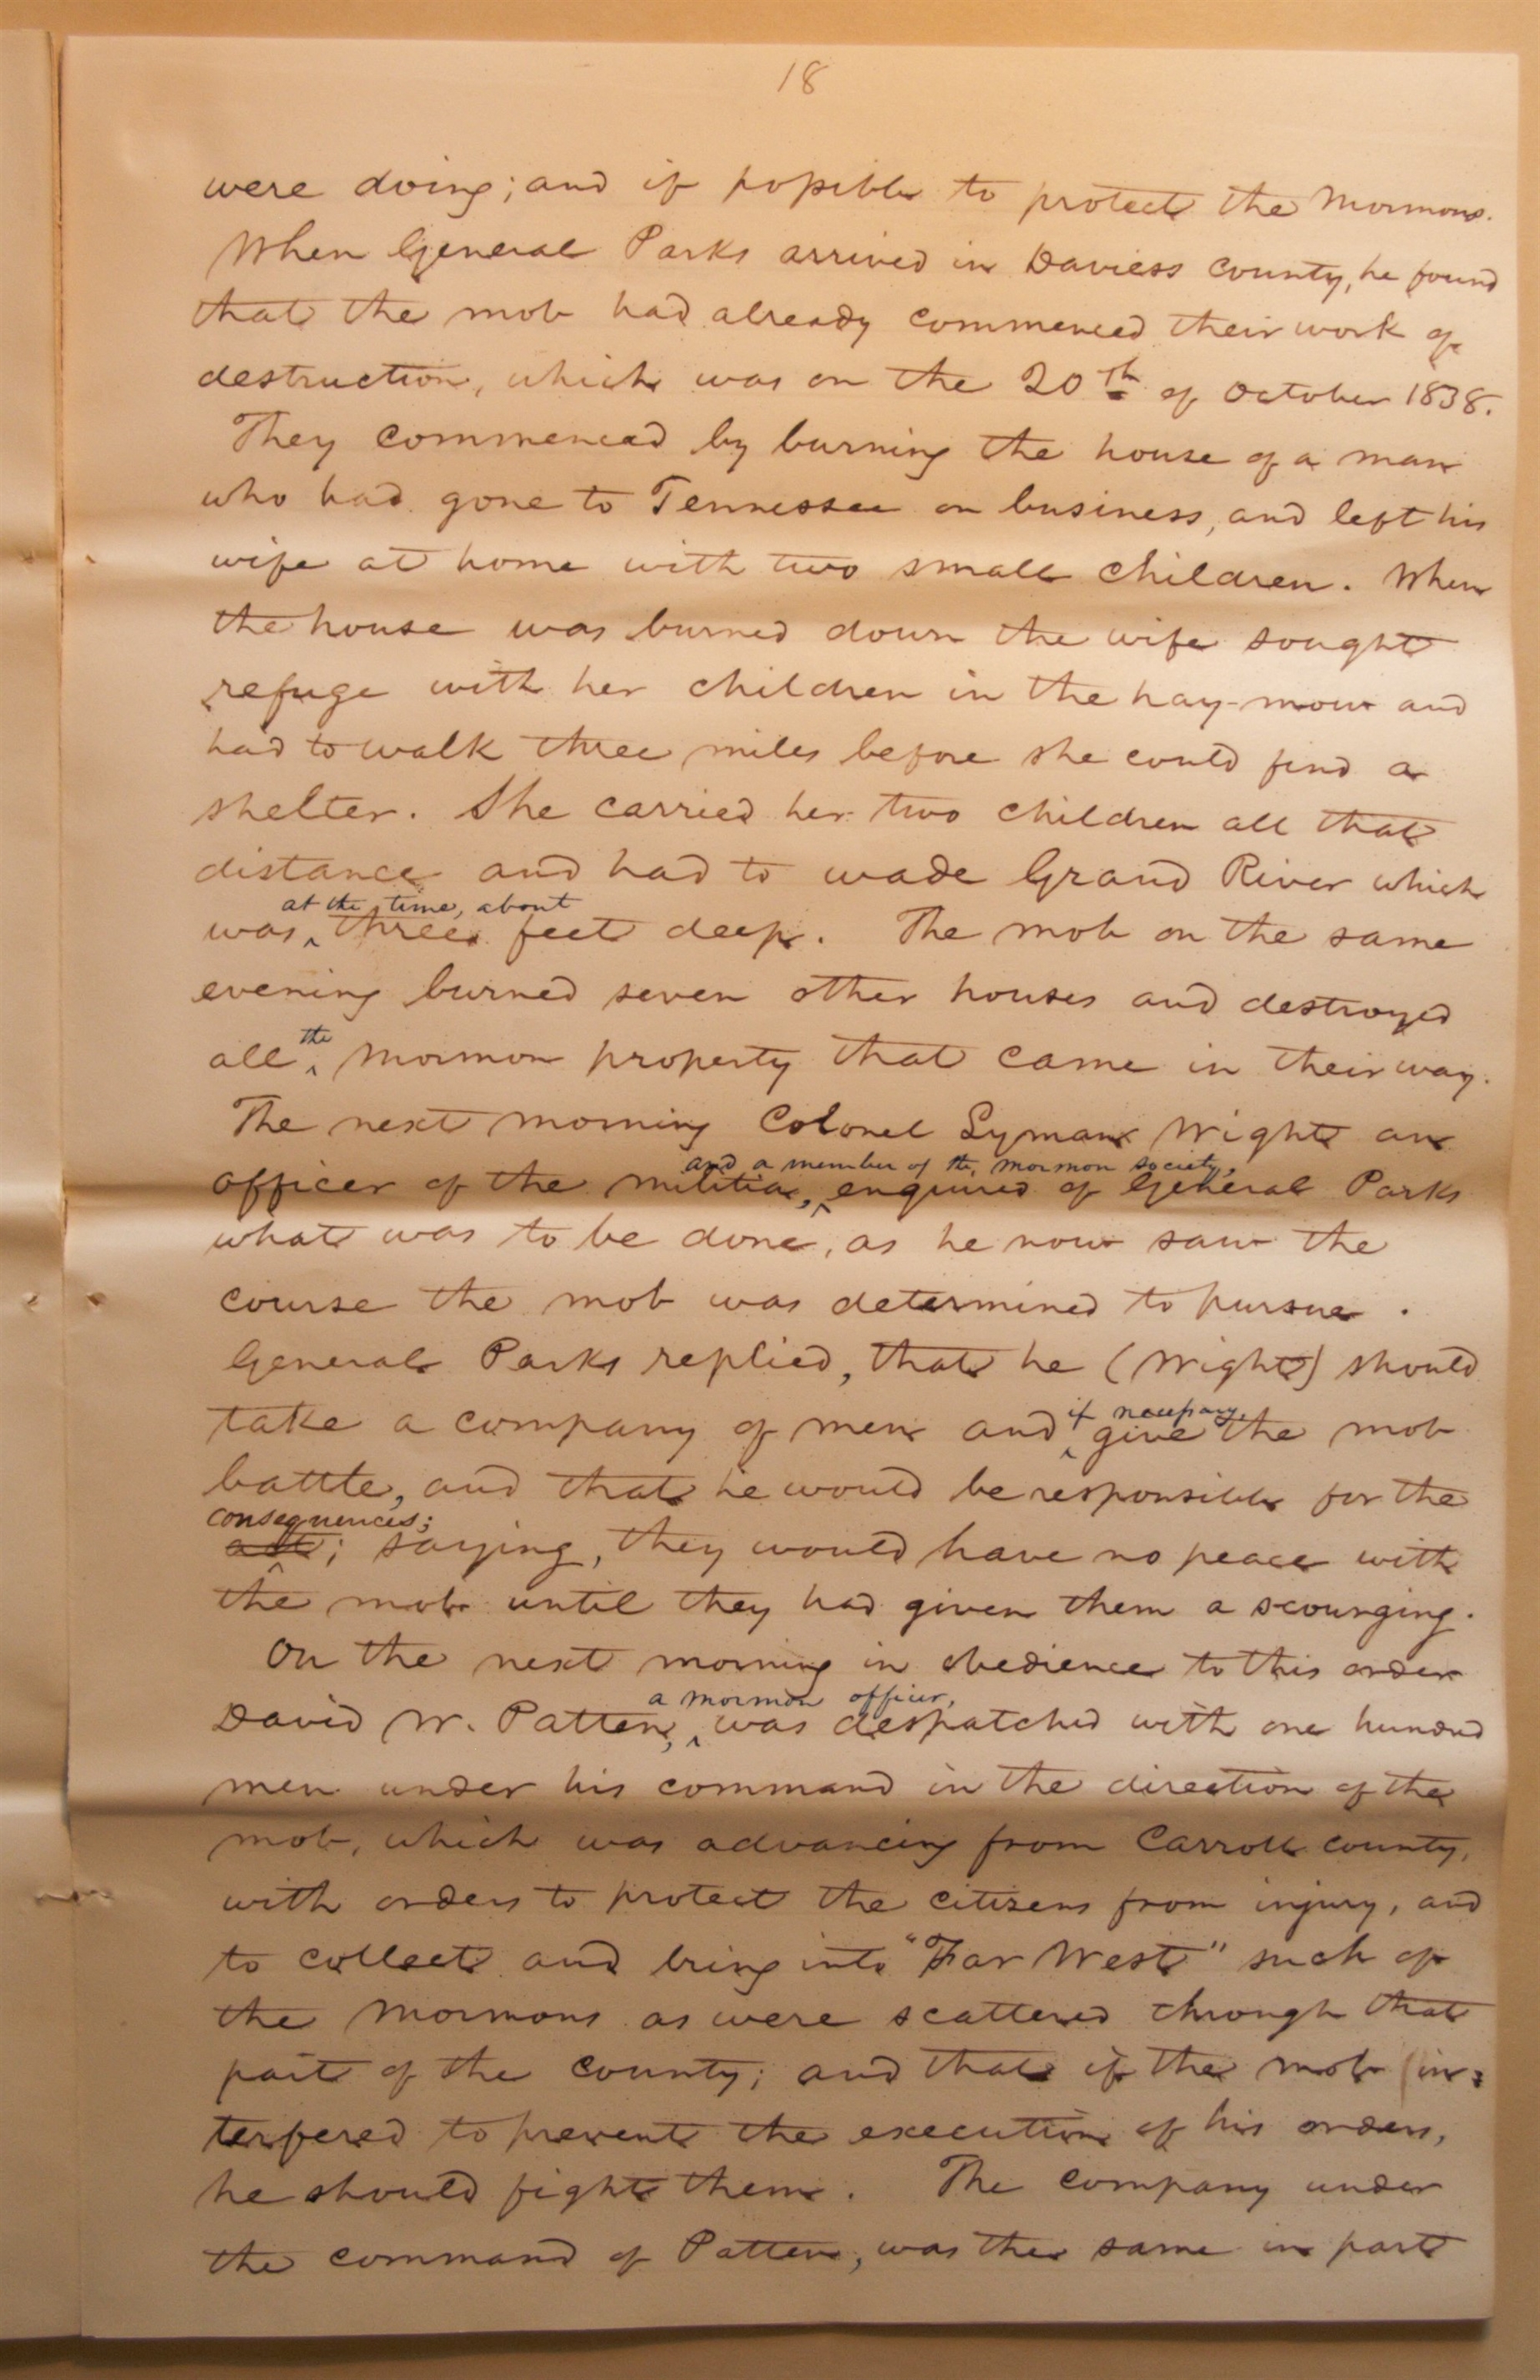 18
were doing; and if possible to protect the Mormons.
When General Parks arrived in Daviess county, he found
that the mob had already commenced their work of
destruction, which was on the 20th of October 1838.
They commenced by burning the house of a man
who had gone to Tennessee on business, and left his
wife at home with two small children. When
the house was burned down the wife sought
refuge with her children in the hay-mow and
had to walk three miles before she could find a
shelter. She carried her two children all that
distance and had to wade Grand River which
at the time, about
was ^ three feet deep. The mob on the same
evening burned seven other houses and destroyed
the
all ^ Mormon property that came in their way.
The next morning Colonel Lyman Wight an
and a member of the Mormon society,
officer of the militia, ^ enquired of General Parks
what was to be done, as he now saw the
course the mob was determined to pursue.
General Parks replied, that he (Wight) should
if necessary,
take a company of men and ^ give the mob
battle, and that he would be responsible for the
consequences;
act; saying, they would have no peace with
the mob until they had given them a scourging.
On the next morning in obedience to this order
a Mormon officer,
David W. Patten, ^ was despatched with one hundred
men under his command in the direction of the
mob, which was advancing from Carroll county,
with orders to protect the citizens from injury, and
to collect and bring into "Far West" such of
the Mormons as were scattered through that
part of the county; and that if the mob in=
terfered to prevent the execution of his orders,
he should fight them. The company under
the command of Patten, was the same in part